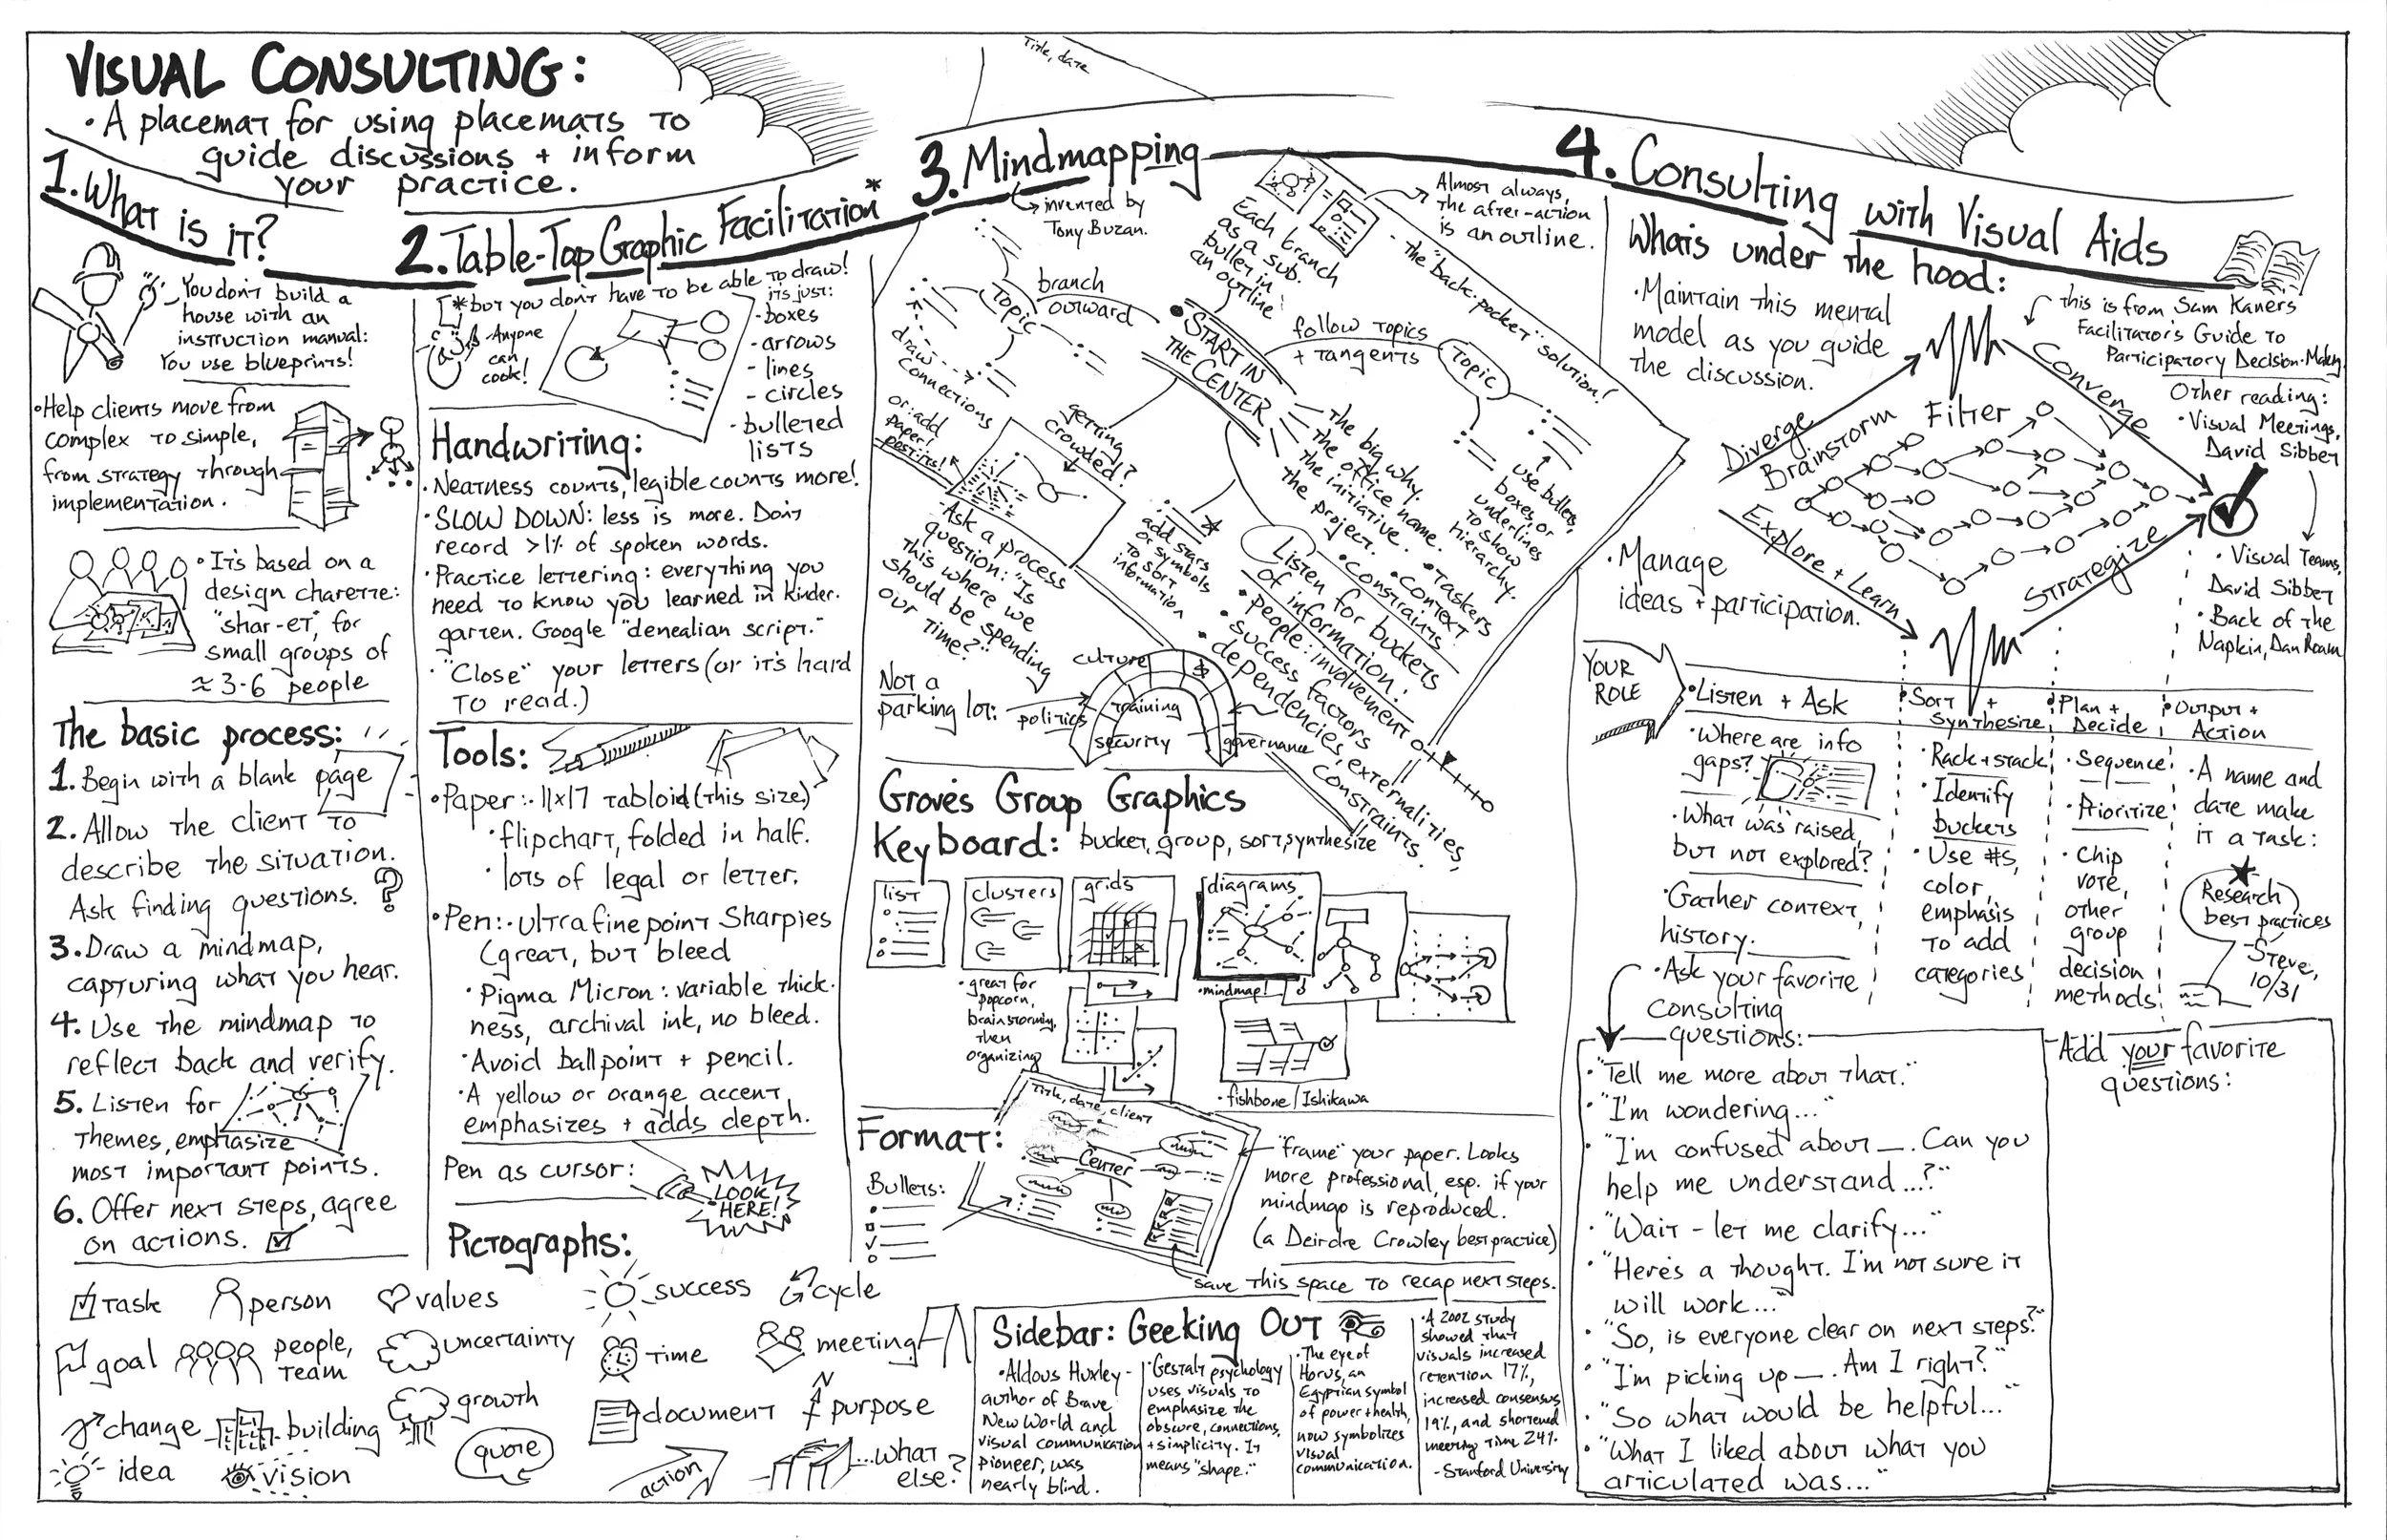 VISUAL CONSULTING:
• A placemat for using placemats to
guide discussions + inform
your practice.
1. What is it?
You don't build a
house with an
instruction manual:
You use blueprints!
• Help clients move from
complex to simple,
from strategy through
implementation.
• It's based on a
design charette:
"shar-et", for
small groups of
≈ 3-6 people
The basic process:
1. Begin with a blank page
2. Allow the client to
describe the situation.
Ask finding questions. ?
3. Draw a mindmap,
capturing what you hear.
4. Use the mindmap to
reflect back and verify.
5. Listen for
themes, emphasize
most important points.
6. Offer next steps, agree
on actions.
2. Table-Top Graphic Facilitation*
*but you don't have to be able to draw!
Anyone
can
cook!
it's just:
- boxes
- arrows
- lines
- circles
- bulleted
lists
Handwriting:
• Neatness counts, legible counts more!
• SLOW DOWN: less is more. Don't
record >1% of spoken words.
• Practice lettering: everything you
need to know you learned in kinder-
garten. Google "denealian script."
• "Close" your letters (or it's hard
to read.)
Tools:
• Paper: • 11x17 tabloid (this size)
• flipchart, folded in half.
• lots of legal or letter.
• Pen: • Ultra fine point Sharpies
(great, but bleed
• Pigma Micron: variable thick-
ness, archival ink, no bleed.
• Avoid ballpoint + pencil.
• A yellow or orange accent
emphasizes + adds depth.
Pen as cursor:
LOOK
HERE!
Pictographs:
task
person
values
success
cycle
goal
people,
team
uncertainty
time
meeting
change
building
growth
document
purpose
idea
vision
quote
action
...what
else?
3. Mindmapping
invented by
Tony Buzan.
Title, date
Topic
branch
outward
draw
connections
• START IN
THE CENTER
Each branch
as a sub.
bullet in
an outline
Almost always,
the after-action
is an outline.
- the "back-pocket" solution!
follow topics
+ tangents
Topic
- use bullets,
boxes, or
underlines
to show
hierarchy.
- the big why.
- the office name.
- the initiative.
- the project.
getting
crowded?
or: add
paper!
post-its!
- Ask a process
question: "Is
this where we
should be spending
our time?"
add stars
or symbols
to sort
information
Listen for buckets
of information:
• people: involvement
• success factors
• dependencies, externalities,
constraints.
• constraints
• context
• taskers
Not a
parking lot:
culture
$
politics
training
security
governance
Grove's Group Graphics
Keyboard: bucket, group, sort, synthesize
list
clusters
grids
diagrams
• great for
popcorn,
brainstorming,
then
organizing
• mindmap!
• fishbone/Ishikawa
Format:
Bullets:
Title, date, client
Center
"frame" your paper. Looks
more professional, esp. if your
mindmap is reproduced.
(a Deirdre Crowley best practice)
save this space to recap next steps.
Sidebar: Geeking Out
• Aldous Huxley-
author of Brave
New World and
visual communication
pioneer, was
nearly blind.
• Gestalt psychology
uses visuals to
emphasize the
obscure, connections,
+ simplicity. It
means "shape."
• The eye of
Horus, an
Egyptian symbol
of power + health,
now symbolizes
visual
communication.
• A 2002 study
showed that
visuals increased
retention 17%,
increased consensus
19%, and shortened
meeting time 24%.
- Stanford University
4. Consulting with Visual Aids
What's under the hood:
• Maintain this mental
model as you guide
the discussion.
this is from Sam Kaner's
Facilitator's Guide to
Participatory Decision-Making
Other reading:
• Visual Meetings,
David Sibbet
• Visual Teams,
David Sibbet
• Back of the
Napkin, Dan Roam
Diverge
Brainstorm
Filter
Converge
Explore + Learn
Strategize
• Manage
ideas + participation.
YOUR
ROLE
• Listen + Ask
• Where are info
gaps?
• What was raised,
but not explored?
• Gather context,
history.
• Ask your favorite
consulting
questions:
• Sort +
Synthesize
• Rack + stack
• Identify
buckets
• Use #s,
color,
emphasis
to add
categories
• Plan +
Decide
• Sequence
• Prioritize
• Chip
vote,
other
group
decision
methods
• Output +
Action
• A name and
date make
it a task:
Research
best practices
- Steve,
10/31
• "Tell me more about that."
• "I'm wondering..."
• "I'm confused about __. Can you
help me understand...?"
• "Wait - let me clarify..."
• "Here's a thought. I'm not sure it
will work..."
• "So, is everyone clear on next steps?"
• "I'm picking up __. Am I right?"
• "So what would be helpful..."
• "What I liked about what you
articulated was..."
Add your favorite
questions: